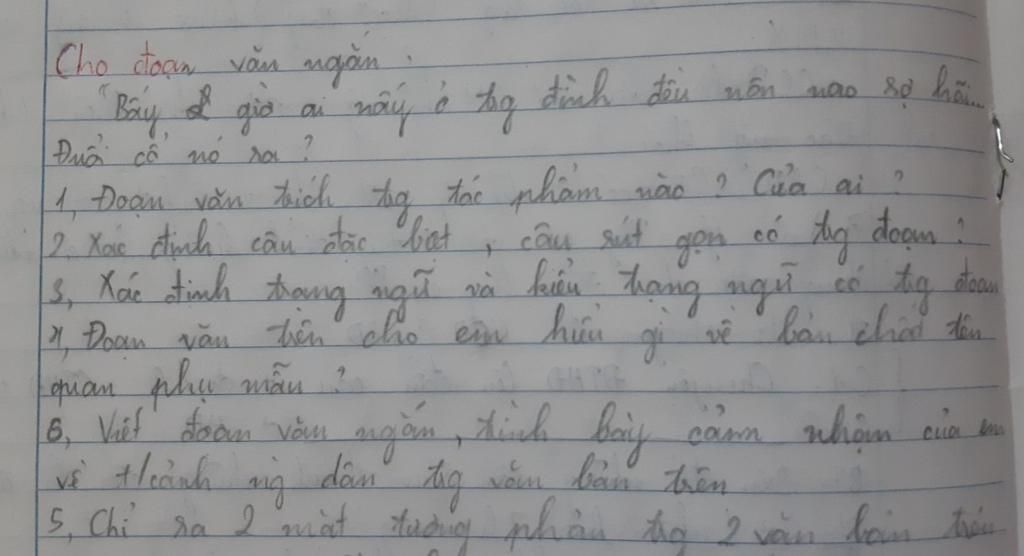 Cho đoạn văn ngắn.
"Bấy giờ ai nấy ở tṛg đình đều nôn nao sợ hãi...
Đuổi cổ nó ra?
1, Đoạn văn trích tṛg tác phẩm nào? Của ai?
2. Xác định câu đặc biệt, câu rút gọn có tṛg đoạn?
3, Xác định trạng ngữ và kiểu trạng ngữ có tṛg đoạn
4, Đoạn văn trên cho em hiểu gì về bản chất tên
quan phụ mẫu?
6, Viết đoạn văn ngắn, trình bày cảm nhận của em
về t/cảnh ng dân tṛg văn bản trên
5, Chỉ ra 2 mặt tương phản tṛg 2 văn bản trên